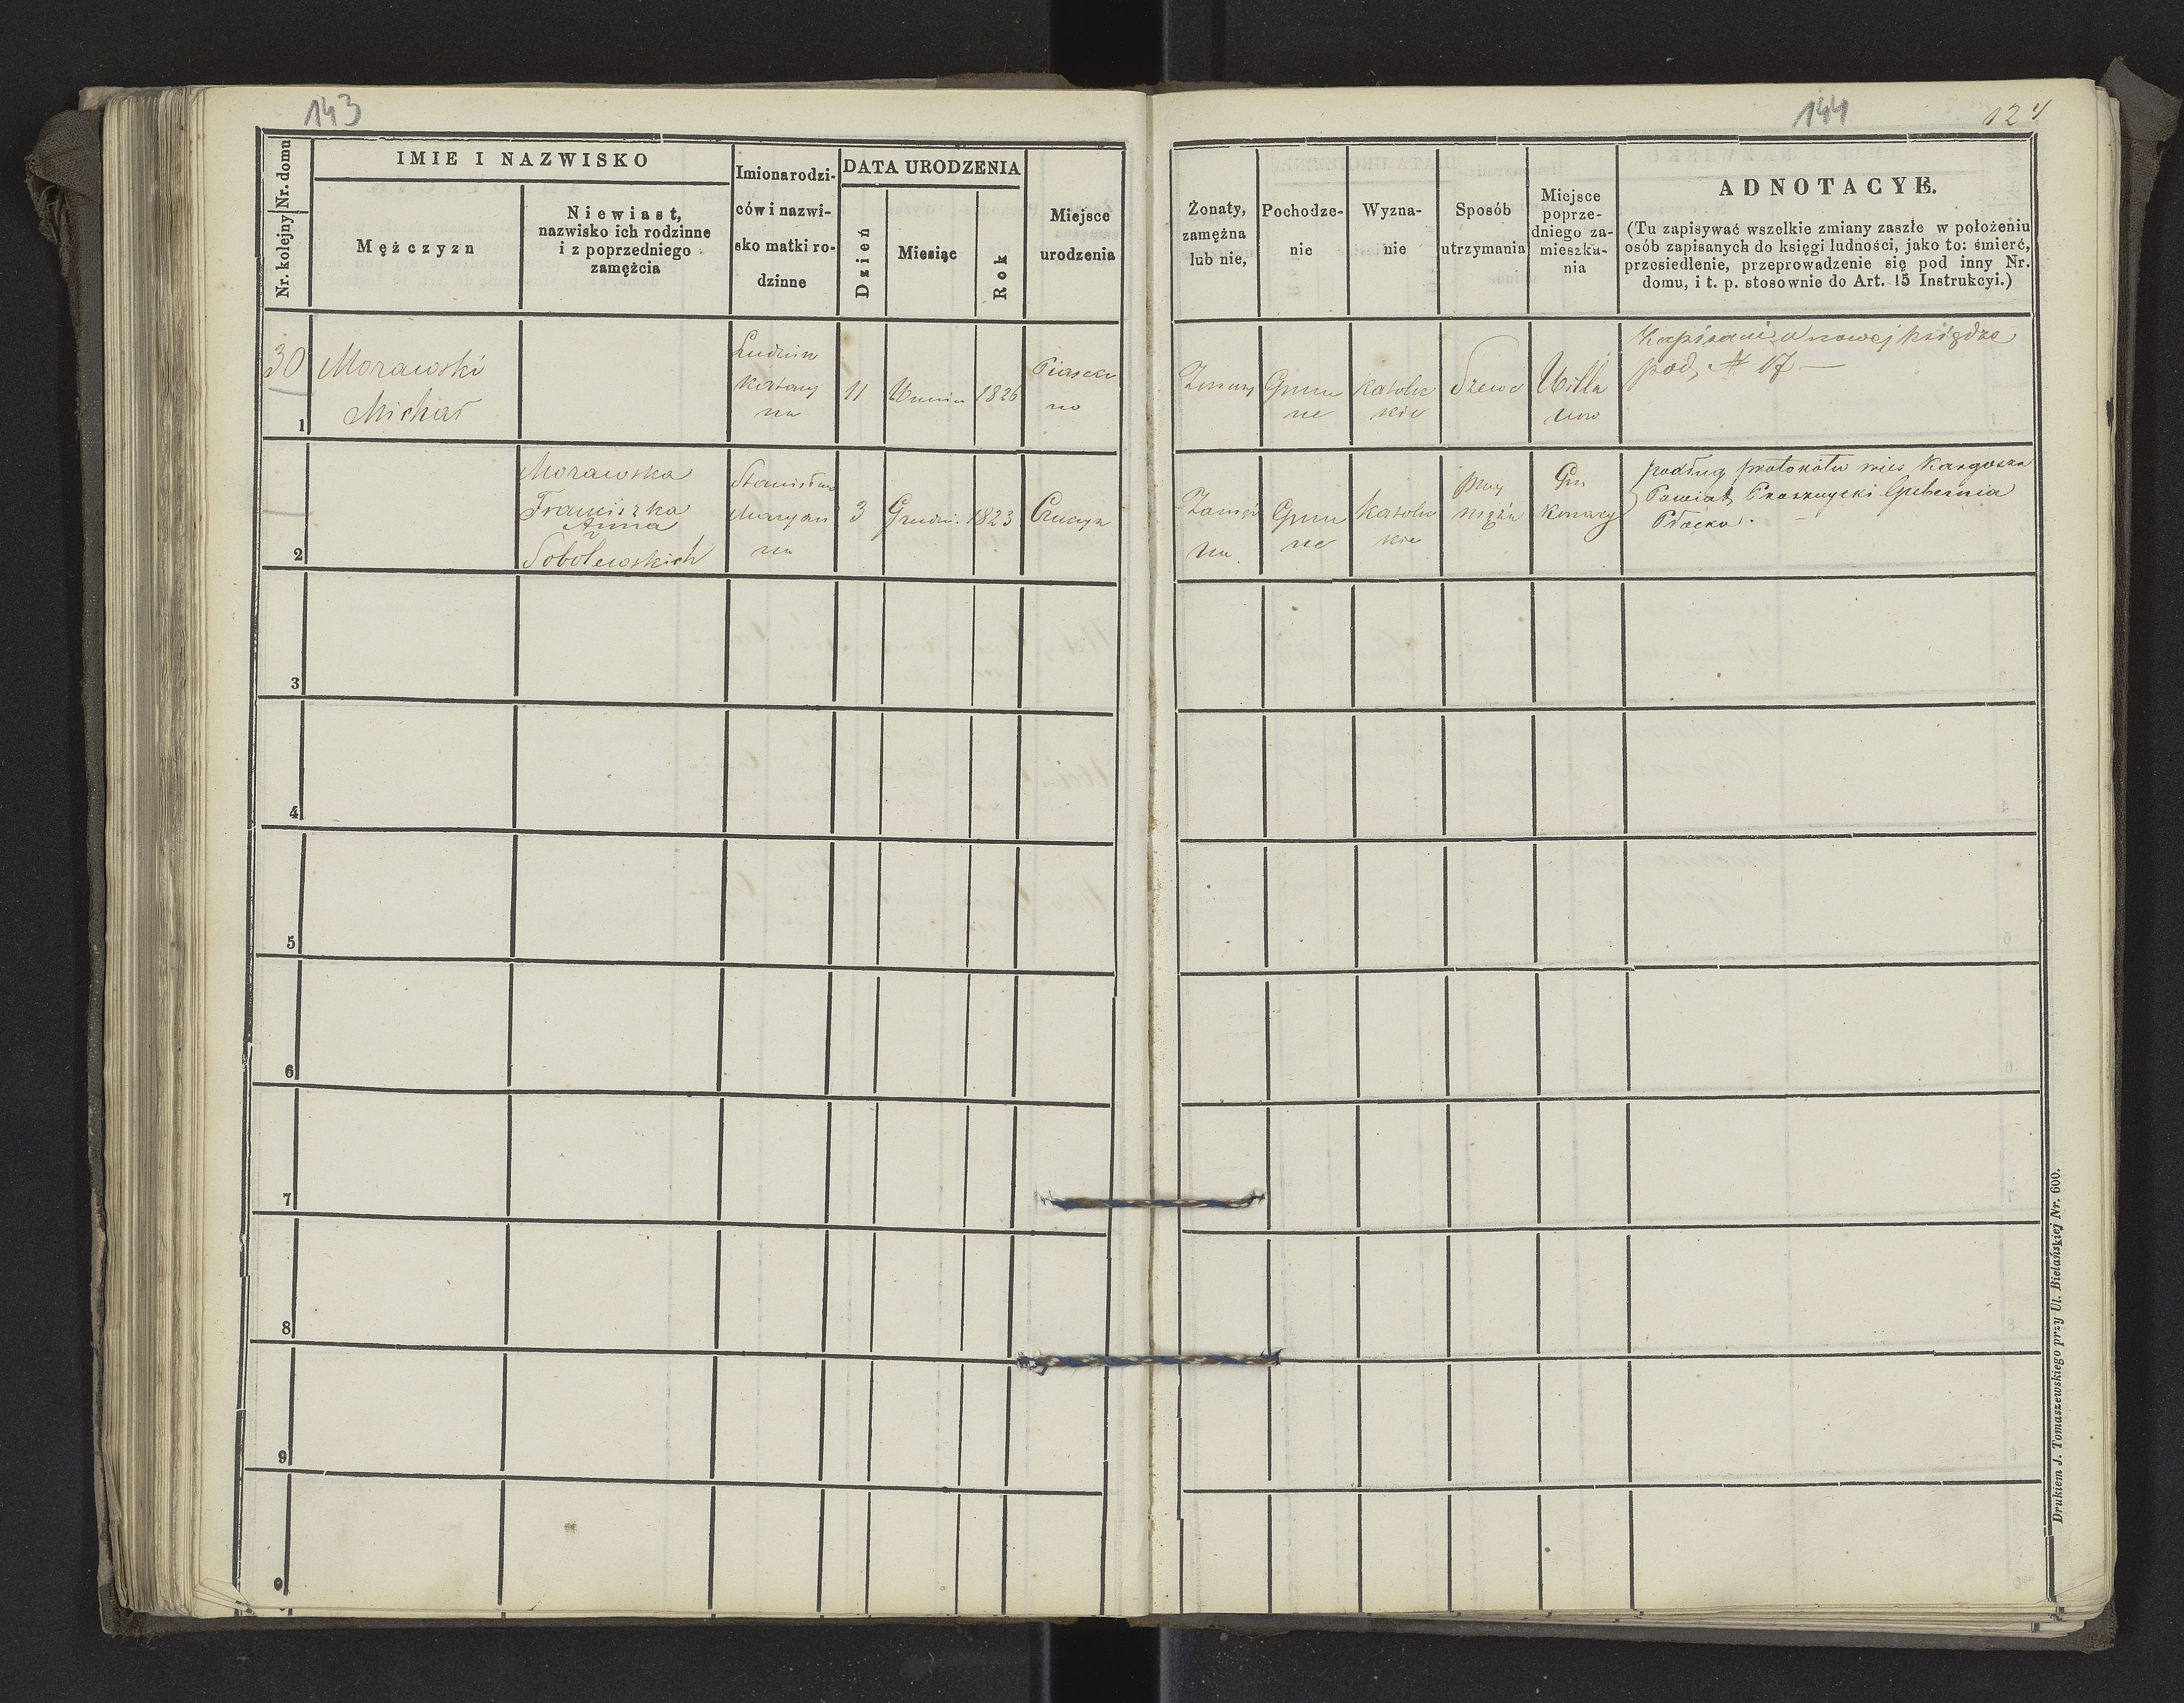 143
Nr. kolejny Nr. domu
IMIE I NAZWISKO
Mężczyzn
Niewiast,
nazwisko ich rodzinne
i z poprzedniego
zamężcia
Imiona rodzi-
ców i nazwi-
sko matki ro-
dzinne
DATA URODZENIA
Dzień
Miesiąc
Rok
Miejsce
urodzenia
30
1
Morawski
Michał
Ludwik
Katarzy
na
11
1826
Piasecz
no
2
Morawska
Franciszka
Anna
z
Sobolewskich
Stanisław
Maryan
na
3
Grudni.
1823
3
4
5
6
7
8
9
0
144
124
Żonaty,
zamężna
lub nie,
Pochodze-
nie
Wyzna-
nie
Sposób
utrzymania
Miejsce
poprze-
dniego za-
mieszka-
nia
ADNOTACYE.
(Tu zapisywać wszelkie zmiany zaszłe w położeniu
osób zapisanych do księgi ludności, jako to: śmierć,
przesiedlenie, przeprowadzenie się pod inny Nr.
domu, i t. p. stosownie do Art. 15 Instrukcyi.)
Żonaty
Gmin
ne
Katolic
kie
Szewc
Willa
now
Zapisani w nowej księdze
pod № 17 —
Zamęż
na
Gmin
ne
Katolic
kie
przy
mężu
Gm
Konary
podług protokółu wieś
Powiat Przasnyski Gubernia
Płocka.
Drukiem J. Tomaszewskiego przy Ul. Bielańskiej Nr. 600.